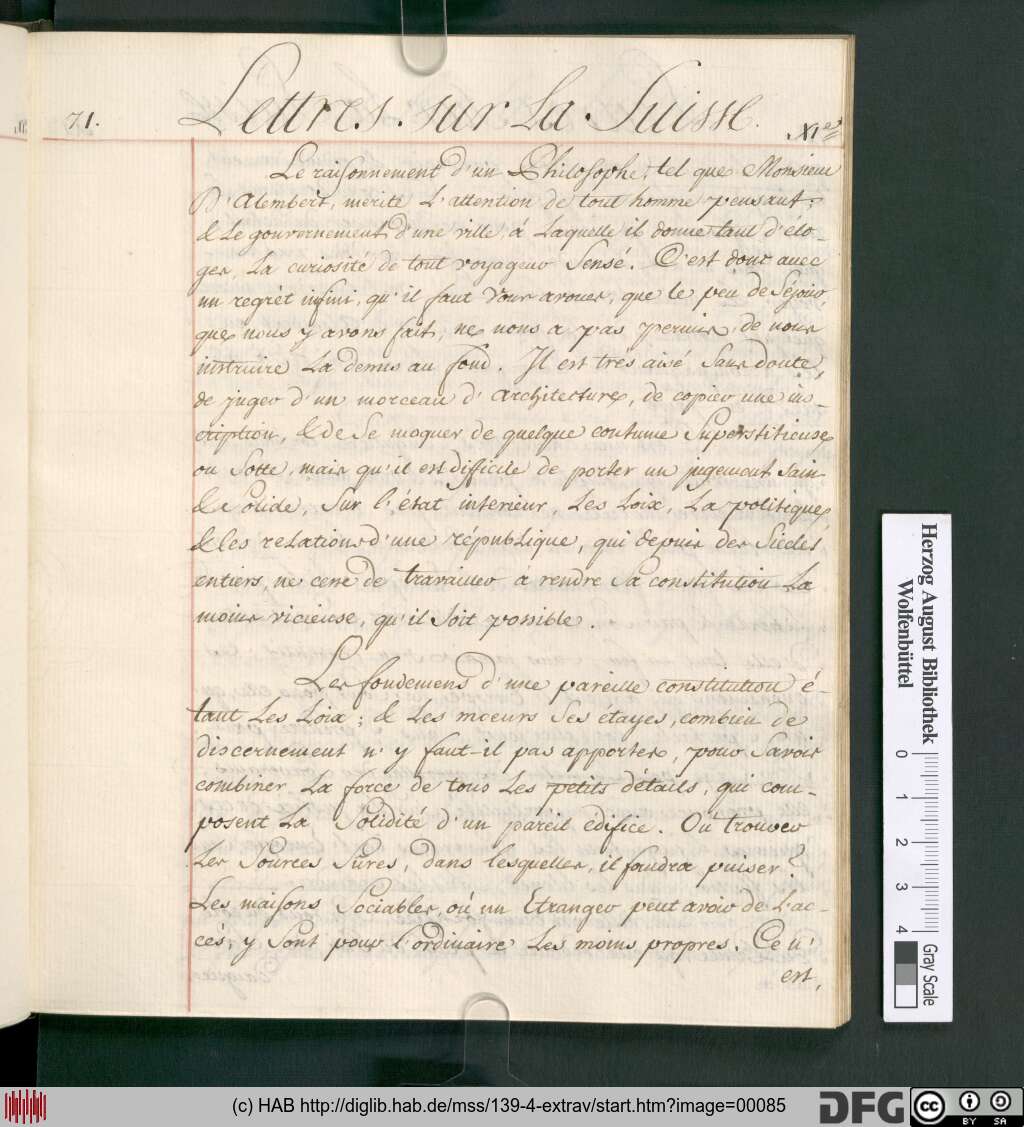 71.
Lettres sur La Suisse.
XI.es
Le raisonnement d'un Philosophe, tel que Monsieur
D'Alembert, mérite l'attention de tout homme pensant;
& Le gouvernement d'une ville, á Laquelle il donne tant d'élo-
ges, La curiosité de tout voyageur Sensé. C'est donc avec
un regrèt infini, qu'il faut vous avouer, que le peu de Séjour,
que nous y avons fait, ne nous a pas permis de nous
instruire La dessus au fond. Il est trés aisé Sans doute,
de juger d'un morceau d'architecture, de copier une ins-
cription, & de Se moquer de quelque coutume Superstitieuse
ou Sotte, mais qu'il est difficile de porter un jugement Sain
& Solide, Sur l'état interieur, Les Loix, La politique,
& les relations d'une république, qui depuis des Siècles
entiers, ne cesse de travailler á rendre Sa constitution La
moins vicieuse, qu'il Soit possible.
Les fondemens d'une pareille constitution é-
tant Les Loix; & Les moeurs Ses étayes, combien de
discernement n'y faut-il pas apporter, pour Savoir
combiner La force de tous Les petits détails, qui com-
posent La Solidité d'un pareil edifice. Où trouver
Les Sources Sûres, dans lesquelles, il faudra puiser?
Les maisons Sociables, oú un Etranger peut avoir de L'ac-
cés, y Sont pour l'ordinaire Les moins propres. Ce n'
est,
Herzog August Bibliothek
Wolfenbüttel
0 1 2 3 4
Gray Scale
(c) HAB http://diglib.hab.de/mss/139-4-extrav/start.htm?image=00085
DFG
cc BY SA